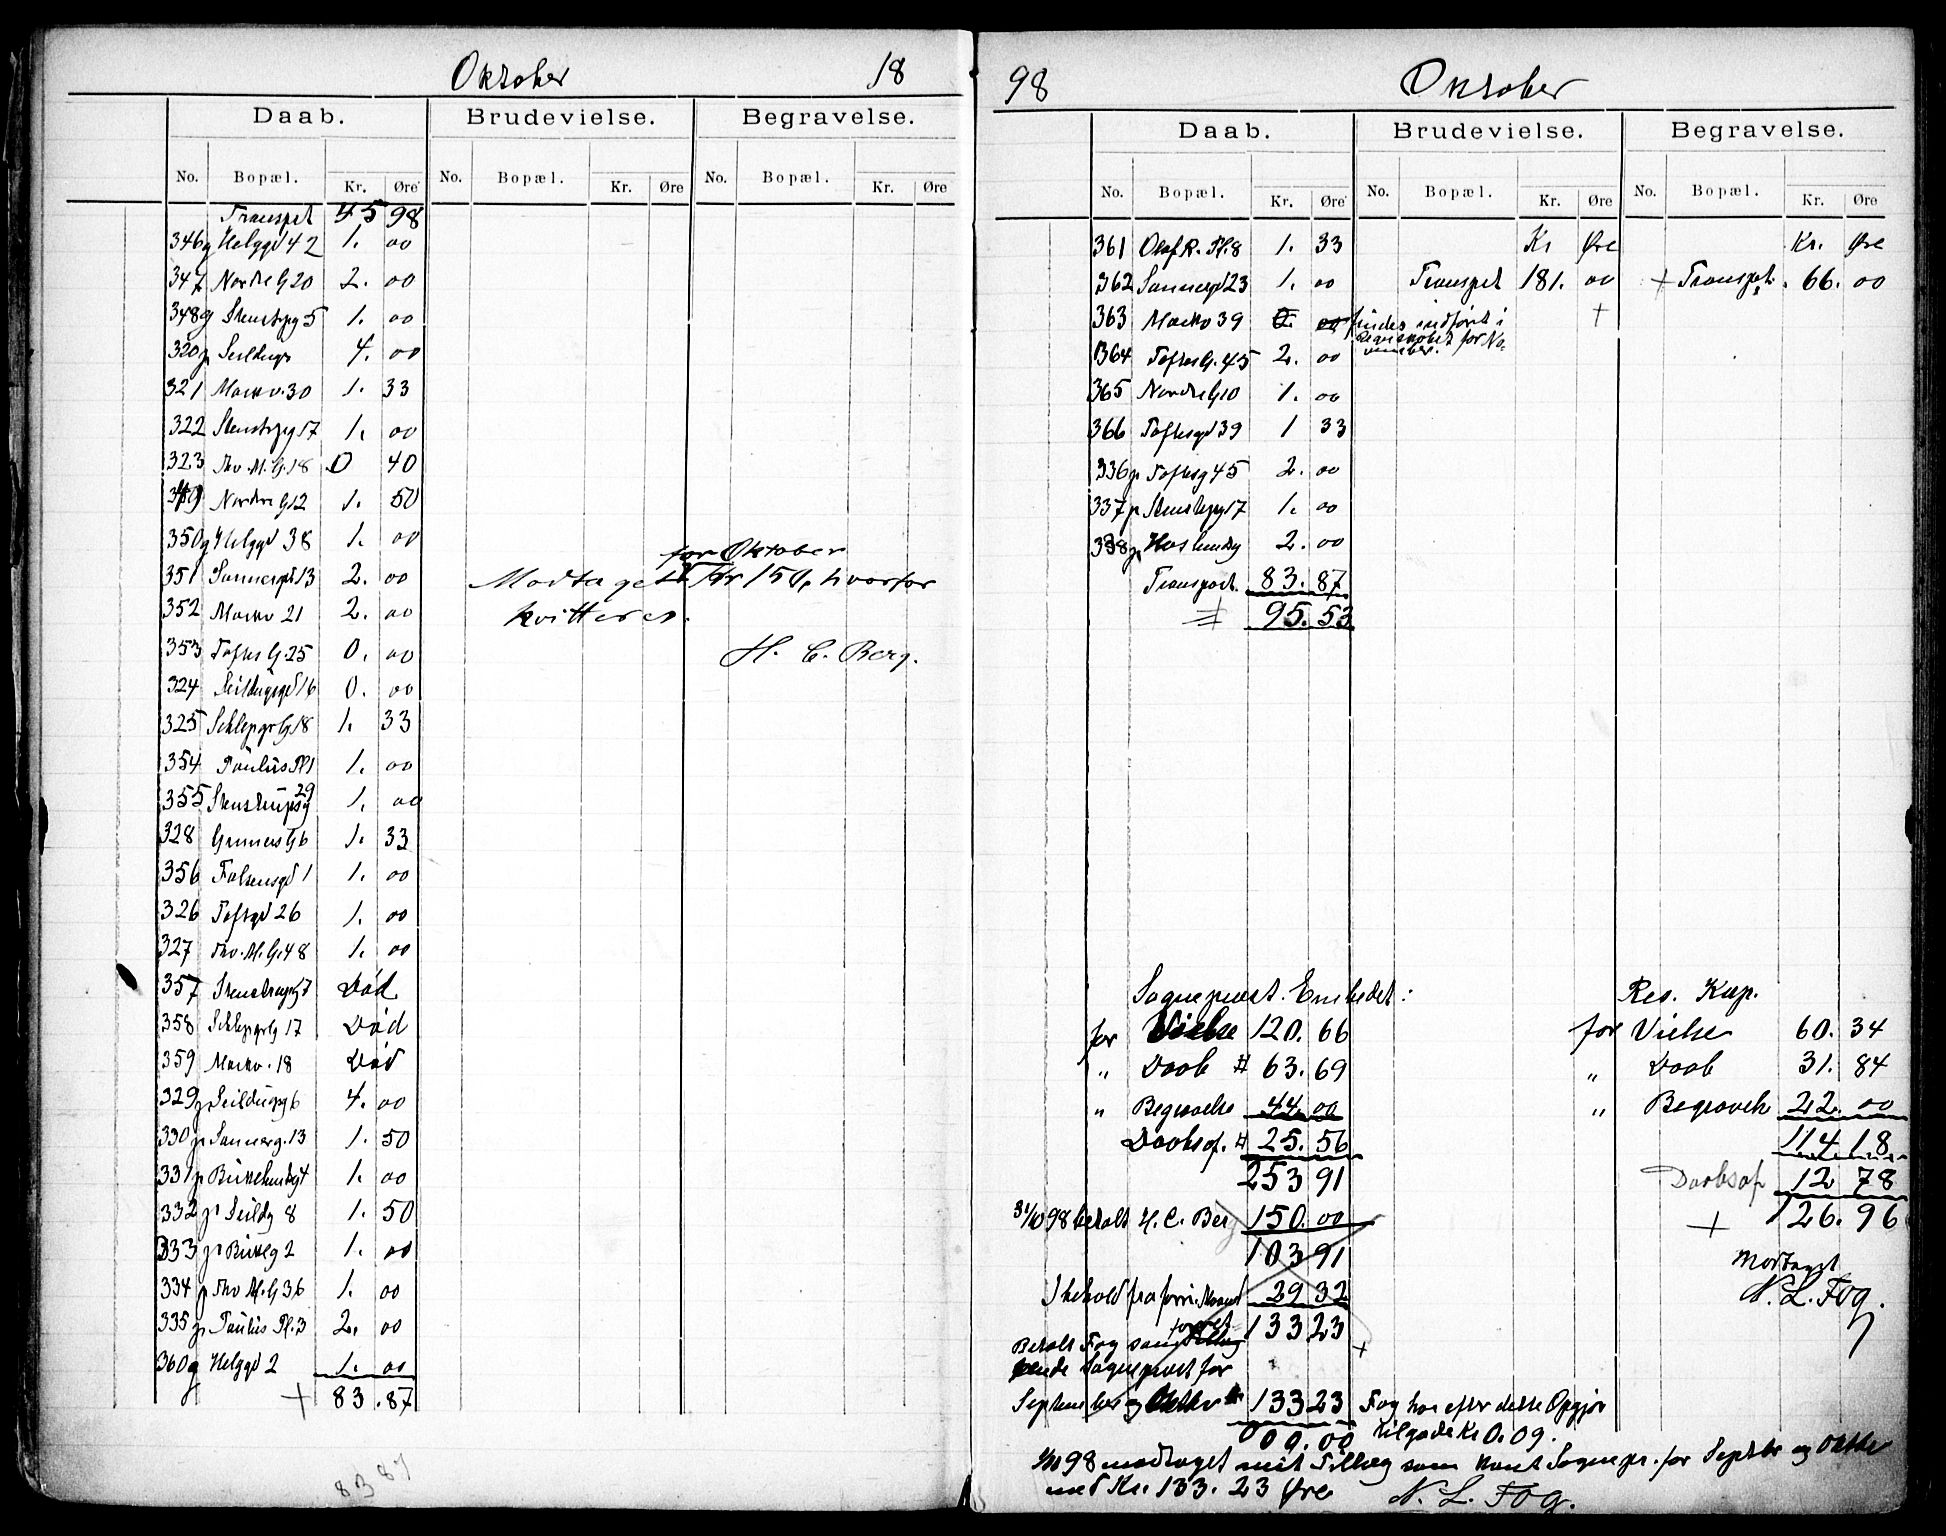 Oktober 18
Daab. Brudevielse. Begravelse.
No. Bopæl. Kr. Øre No. Bopæl. Kr. Øre No. Bopæl. Kr. Øre
Transpt 45 98
346g Helggd 42 1. 00
347 Nordre G 20 2. 00
348g Stenstrpg 5 1. 00
320p Seildugs 4. 00
321 Markv. 30 1. 33
322 Stenstrpg 17 1. 00
323 Thv. M. G. 18 0 40
349 Nordre G 12 1. 50
350g Helggd 38 1. 00
for Oktober
351 Sannergd 13 2. 00 Modtaget Kr 150, hvorfor
352 Markv 21 2. 00 kvitteres.
353 Toftes G. 25 0. 00 H. C. Berg.
324 Seildugsgd 16 0. 00
325 Schleppgr G 18 1. 33
354 Paulus Pl 1 1. 00
355 Stenstrupsg 29 1. 00
328 Grüners G 6 1. 33
356 Falsensgd 1 1. 00
326 Toftgd 26 1. 00
327 Thv. M. G. 48 1. 00
357 Stenstrupg 7 Død
358 Schlepgrg 17 Død
359 Markv. 18 Død
329p Seildugsg 6 4. 00
330p Sannerg. 13 1. 50
331p Birkelundsg 4 1. 00
332p Seildg 8 1. 50
333p Birkelg 2 1. 00
334p Thv M. G 36 1. 00
335p Paulus Pl. 3 2. 00
360g Helggd 2 1. 00
+ 83. 87
83 87
98 Oktober
Daab. Brudevielse. Begravelse.
No. Bopæl. Kr. Øre No. Bopæl. Kr. Øre No. Bopæl. Kr. Øre
361 Olaf R. Pl. 8 1. 33 Kr Øre Kr. Øre
362 Sannergd 23 1. 00 Transpt 181. 00 + Transpt. 66. 00
363 Markv 39 0. 00 findes indført i +
Regnskabet for No-
vember.
364 Toftes G. 45 2. 00
365 Nordre G 10 1. 00
366 Toftesgd 39 1 33
336p Toftesg 45 2. 00
337p Stenstrpg 17 1. 00
338p Haslundsg 2. 00
Transport. 83. 87
95. 53
Sogneprest. Embedet: Res. Kap.
for Vielse 120. 66 for Vielse 60. 34
" Daab # 63. 69 " Daab 31. 84
" Begravelse 44. 00 " Begravelse 22. 00
Daabsof. # 25. 56 114 18
253 91 Daabsof 12 78
31/10 98 betalt H. C. Berg 150. 00 + 126. 96
103 91 Modtaget
I behold fra forri. Maaned 29 32 N. L. Fog.
133 23
Betalt Fog som
Sogneprest for +
September og Oktbr 133 23 Fog har efter dette Opgjør
000. 00 tilgode Kr 0. 09.
98 modtaget mit Tillæg som konst Sognepr. for Septbr og Oktbr
med Kr. 133. 23 Øre N. L. Fog.